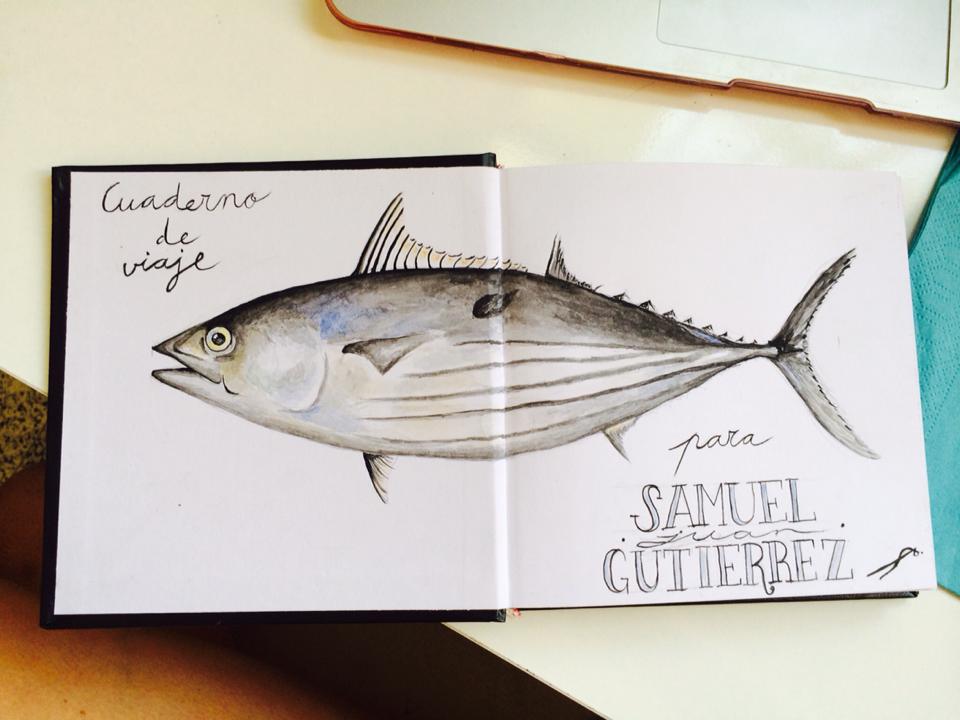 Cuaderno
de
viaje
para
SAMUEL
juan
GUTIERREZ